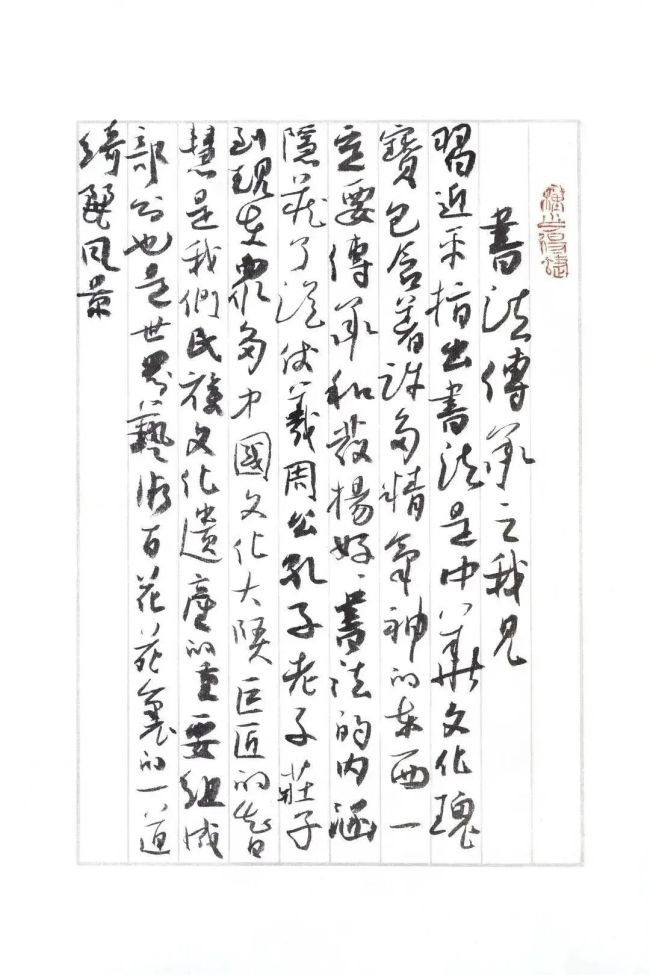 書法傳承之我見
習近平指出書法是中華文化瑰
寶包含着許多精氣神的東西一
定要傳承和發揚好、書法的内涵
隱藏了從伏羲周公孔子老子莊子
到現在衆多中國文化大賢巨匠的智
慧是我們民族文化遺產的重要組成
部分也是世界藝術百花苑裏的一道
綺麗風景